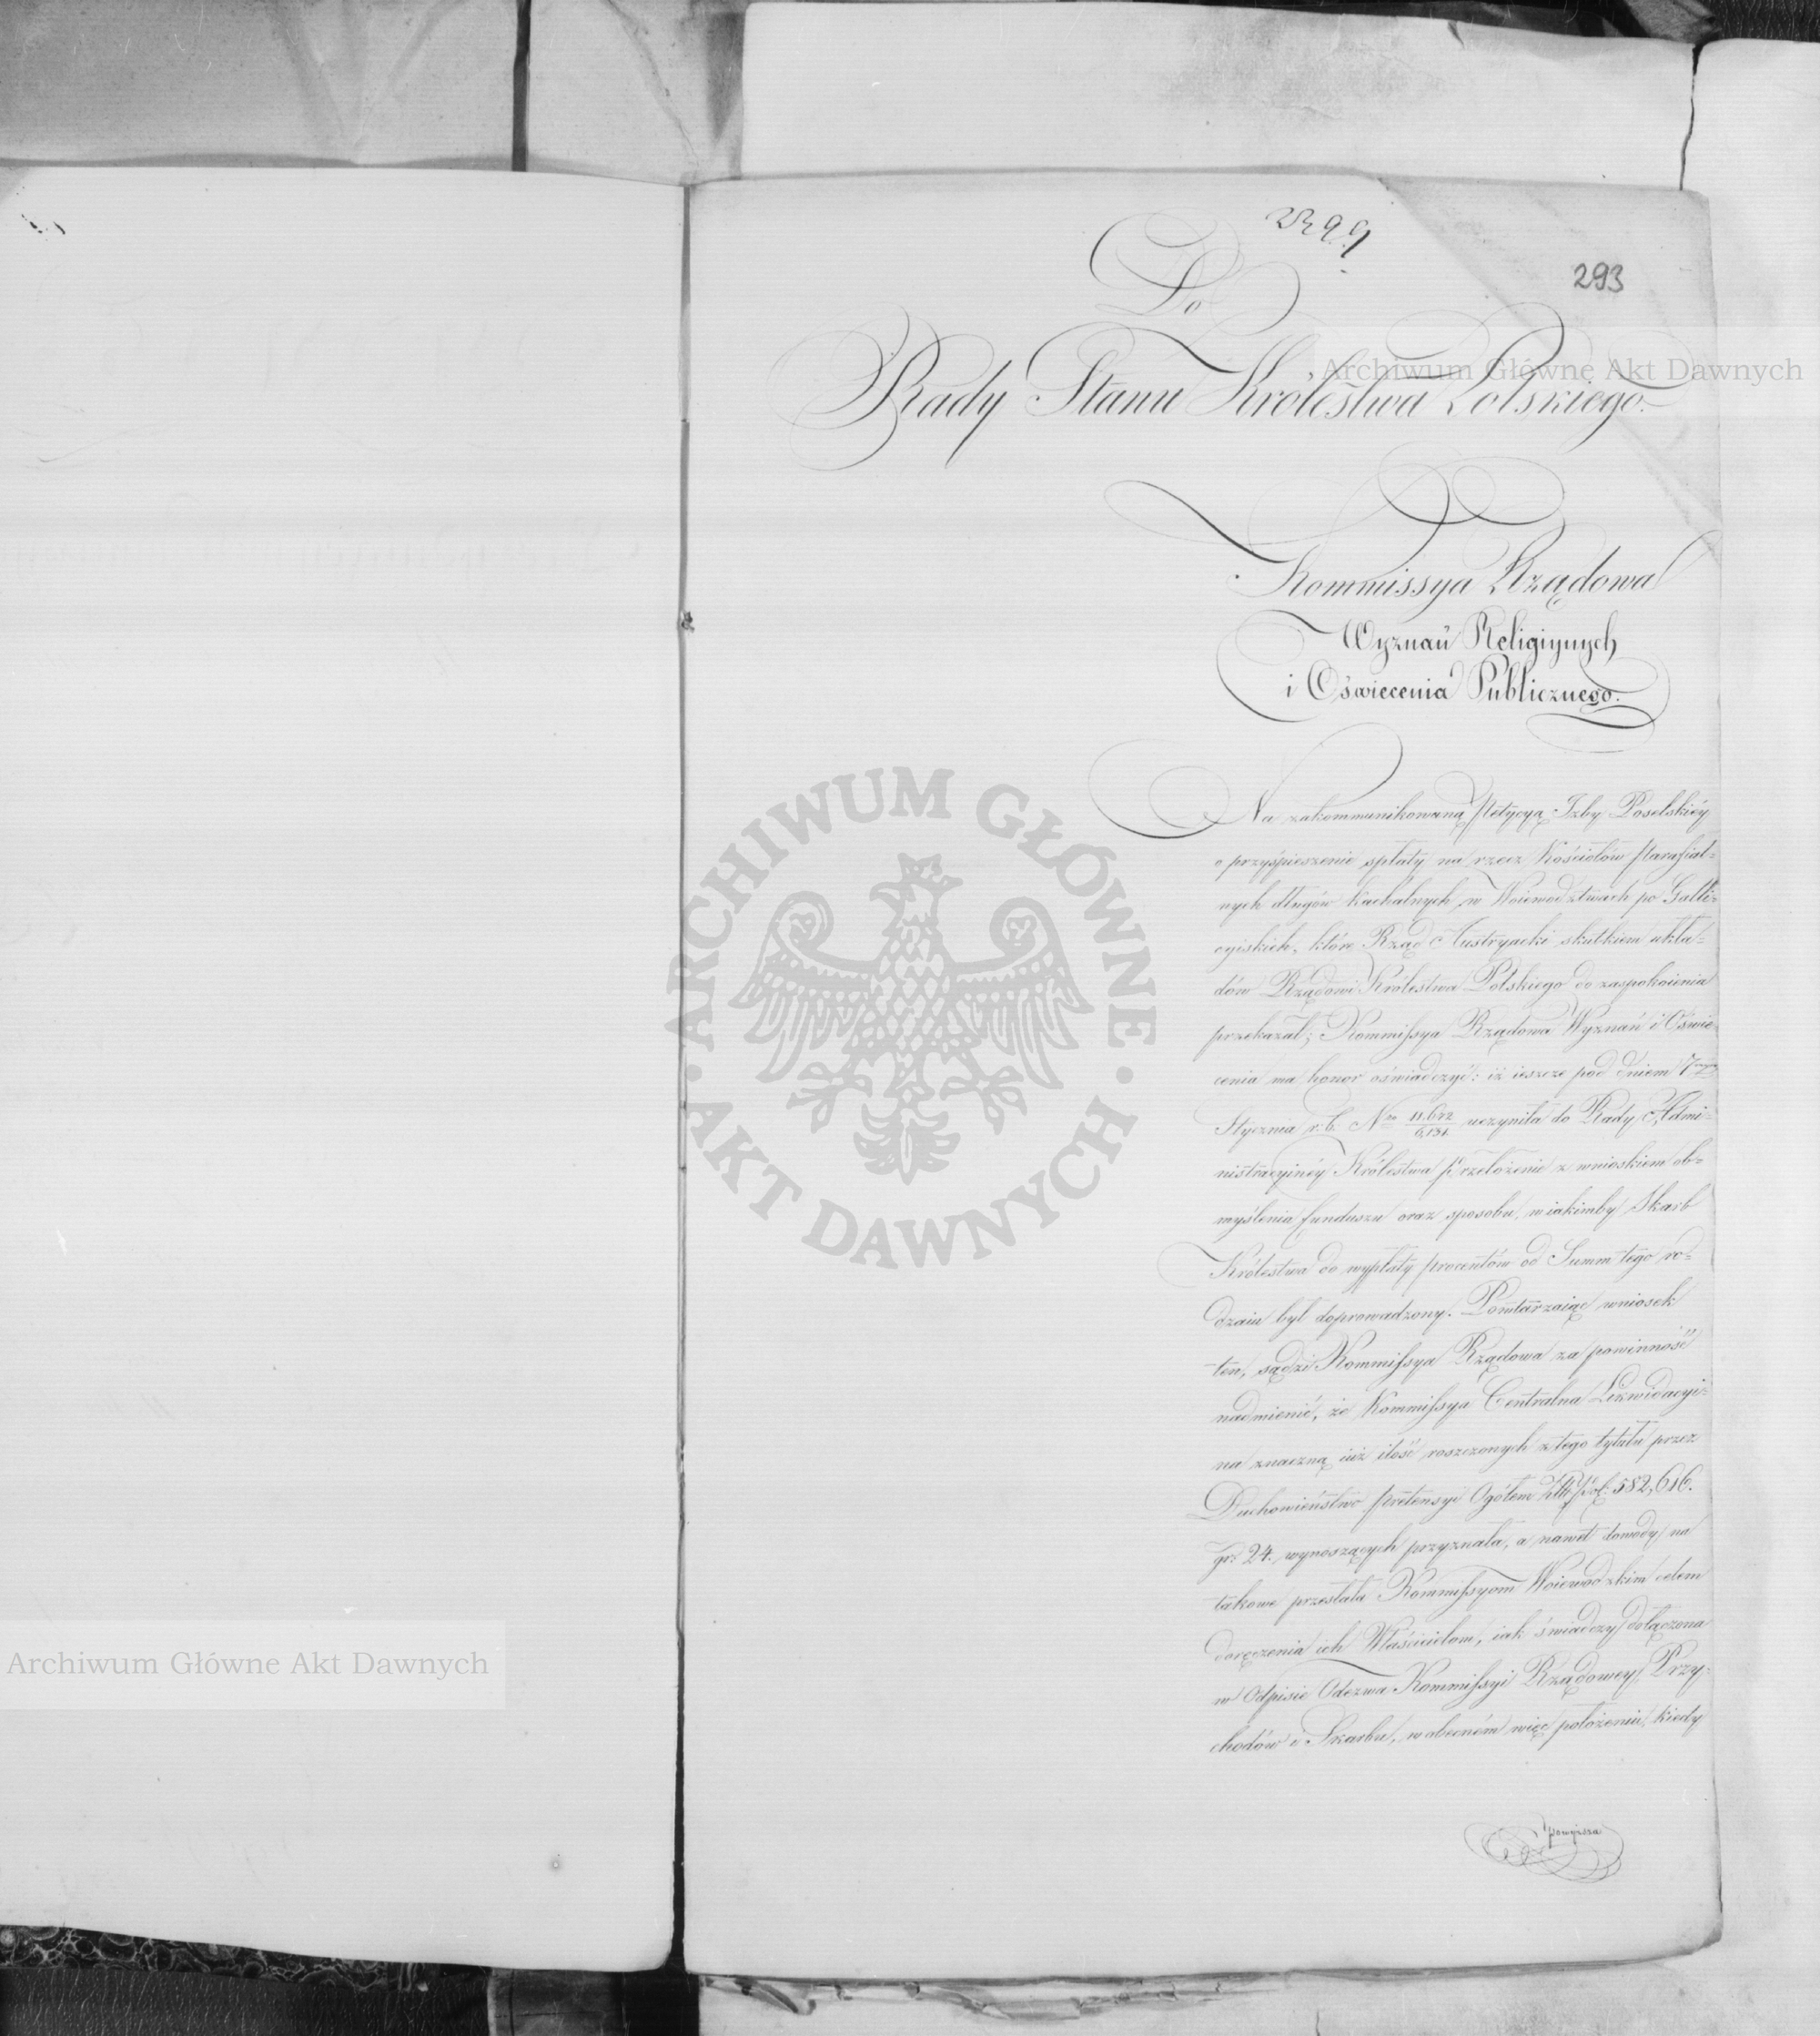 2399
293
Do
Rady Stanu Królestwa Polskiego.
Kommissya Rządowa
Wyznań Religiynych
i Oświecenia Publicznego.
Na zakommunikowaną Petycyą Izby Poselskiéy
o przyśpieszenie spłaty na rzecz Kościołów Parafial=
nych długów kachalnych, w Woiewodztwach po Galli=
cyiskich, które Rząd Austryacki skutkiem ukła=
dów Rządowi Królestwa Polskiego do zaspokoienia
przekazał; Kommissya Rządowa Wyznań i Oświe
cenia ma honor oświadczyć: iż ieszcze pod dniem 7
Stycznia r. b. No 11,672/6,131 uczyniła do Rady Admi=
nistracyinéy Królestwa Przełożenie z wnioskiem ob=
myślenia funduszu oraz sposobu, w iakimby Skarb
Królestwa do wypłaty procentów od Summ tego ro=
dzaiu był doprowadzony. Powtarzaiąc wniosek
ten, sądzi Kommissya Rządowa za powinność
nadmienić, że Kommissya Centralna Likwidacyi=
na znaczną iuż ilość roszczonych z tego tytułu przez
Duchowieństwo pretensyi Ogółem Złł Pol: 582,616.
gr: 24. wynoszących przyznała, a nawet dowody na
takowe przesłała Kommissyom Woiewodzkim celem
doręczenia ich Właścicielom, iak świadczy dołączona
w Odpisie Odezwa Kommissyi Rządowey Przy=
chodów i Skarbu, w obecném więc położeniu, kiedy
powyższa
Archiwum Główne Akt Dawnych
ARCHIWUM GŁÓWNE · AKT DAWNYCH ·
Archiwum Główne Akt Dawnych